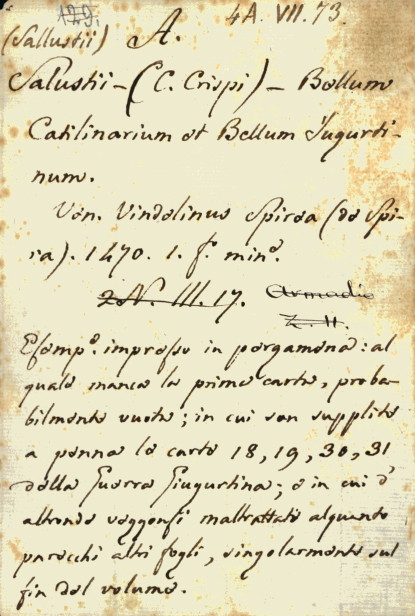 129.
4A. VII. 73.
(Sallustii) A.
Salustii - (C. Crispi) - Bellum
Catilinarium et Bellum Jugurti-
num.
Ven. Vindelinus Spirea (de Spi-
ra). 1470. 1. f.º min.º
2N. III. 17. Armadio
Z. II.
Esemp.º impresso in pergamena: al
quale manca la prima carta, proba-
bilmente vuota; in cui son supplite
a penna le carte 18, 19, 30, 31
della Guerra Giugurtina; e in cui d'
altronde veggonsi maltrattate alquanto
parecchi altri fogli, singolarmente sul
fin del volume.